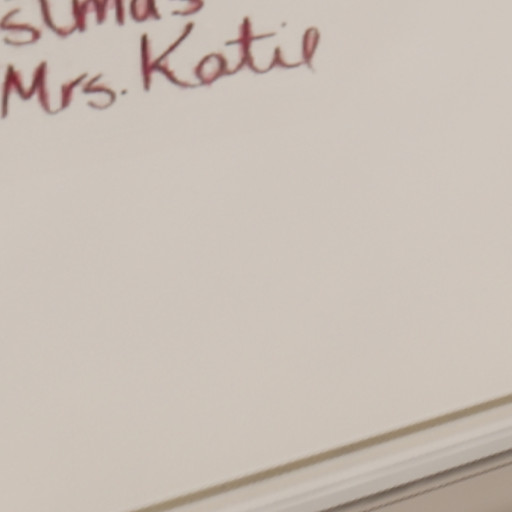 stmas
Mrs. Katie